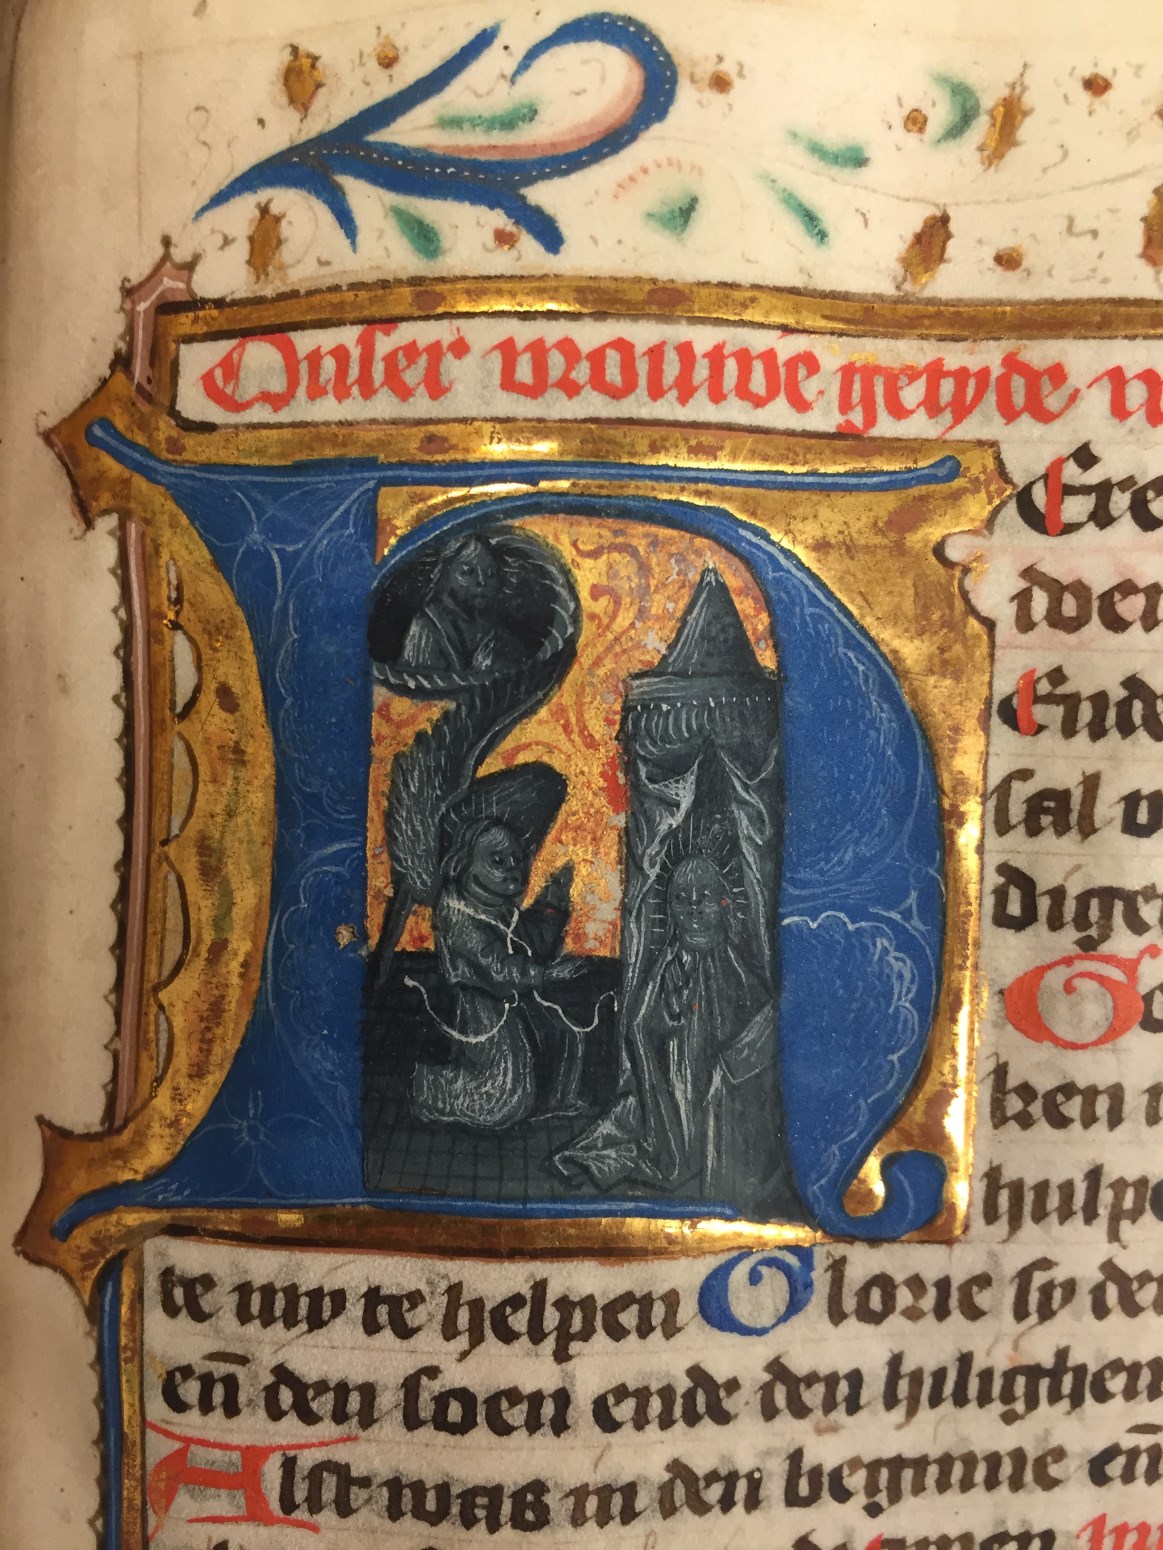 Onser vrouwe getyde
HEre
Ende
sal
dige
ken
hulpe
te my te helpen Glorie sy den
en̄ den soen ende den hilighen
Alst was in den beginne en̄
amen